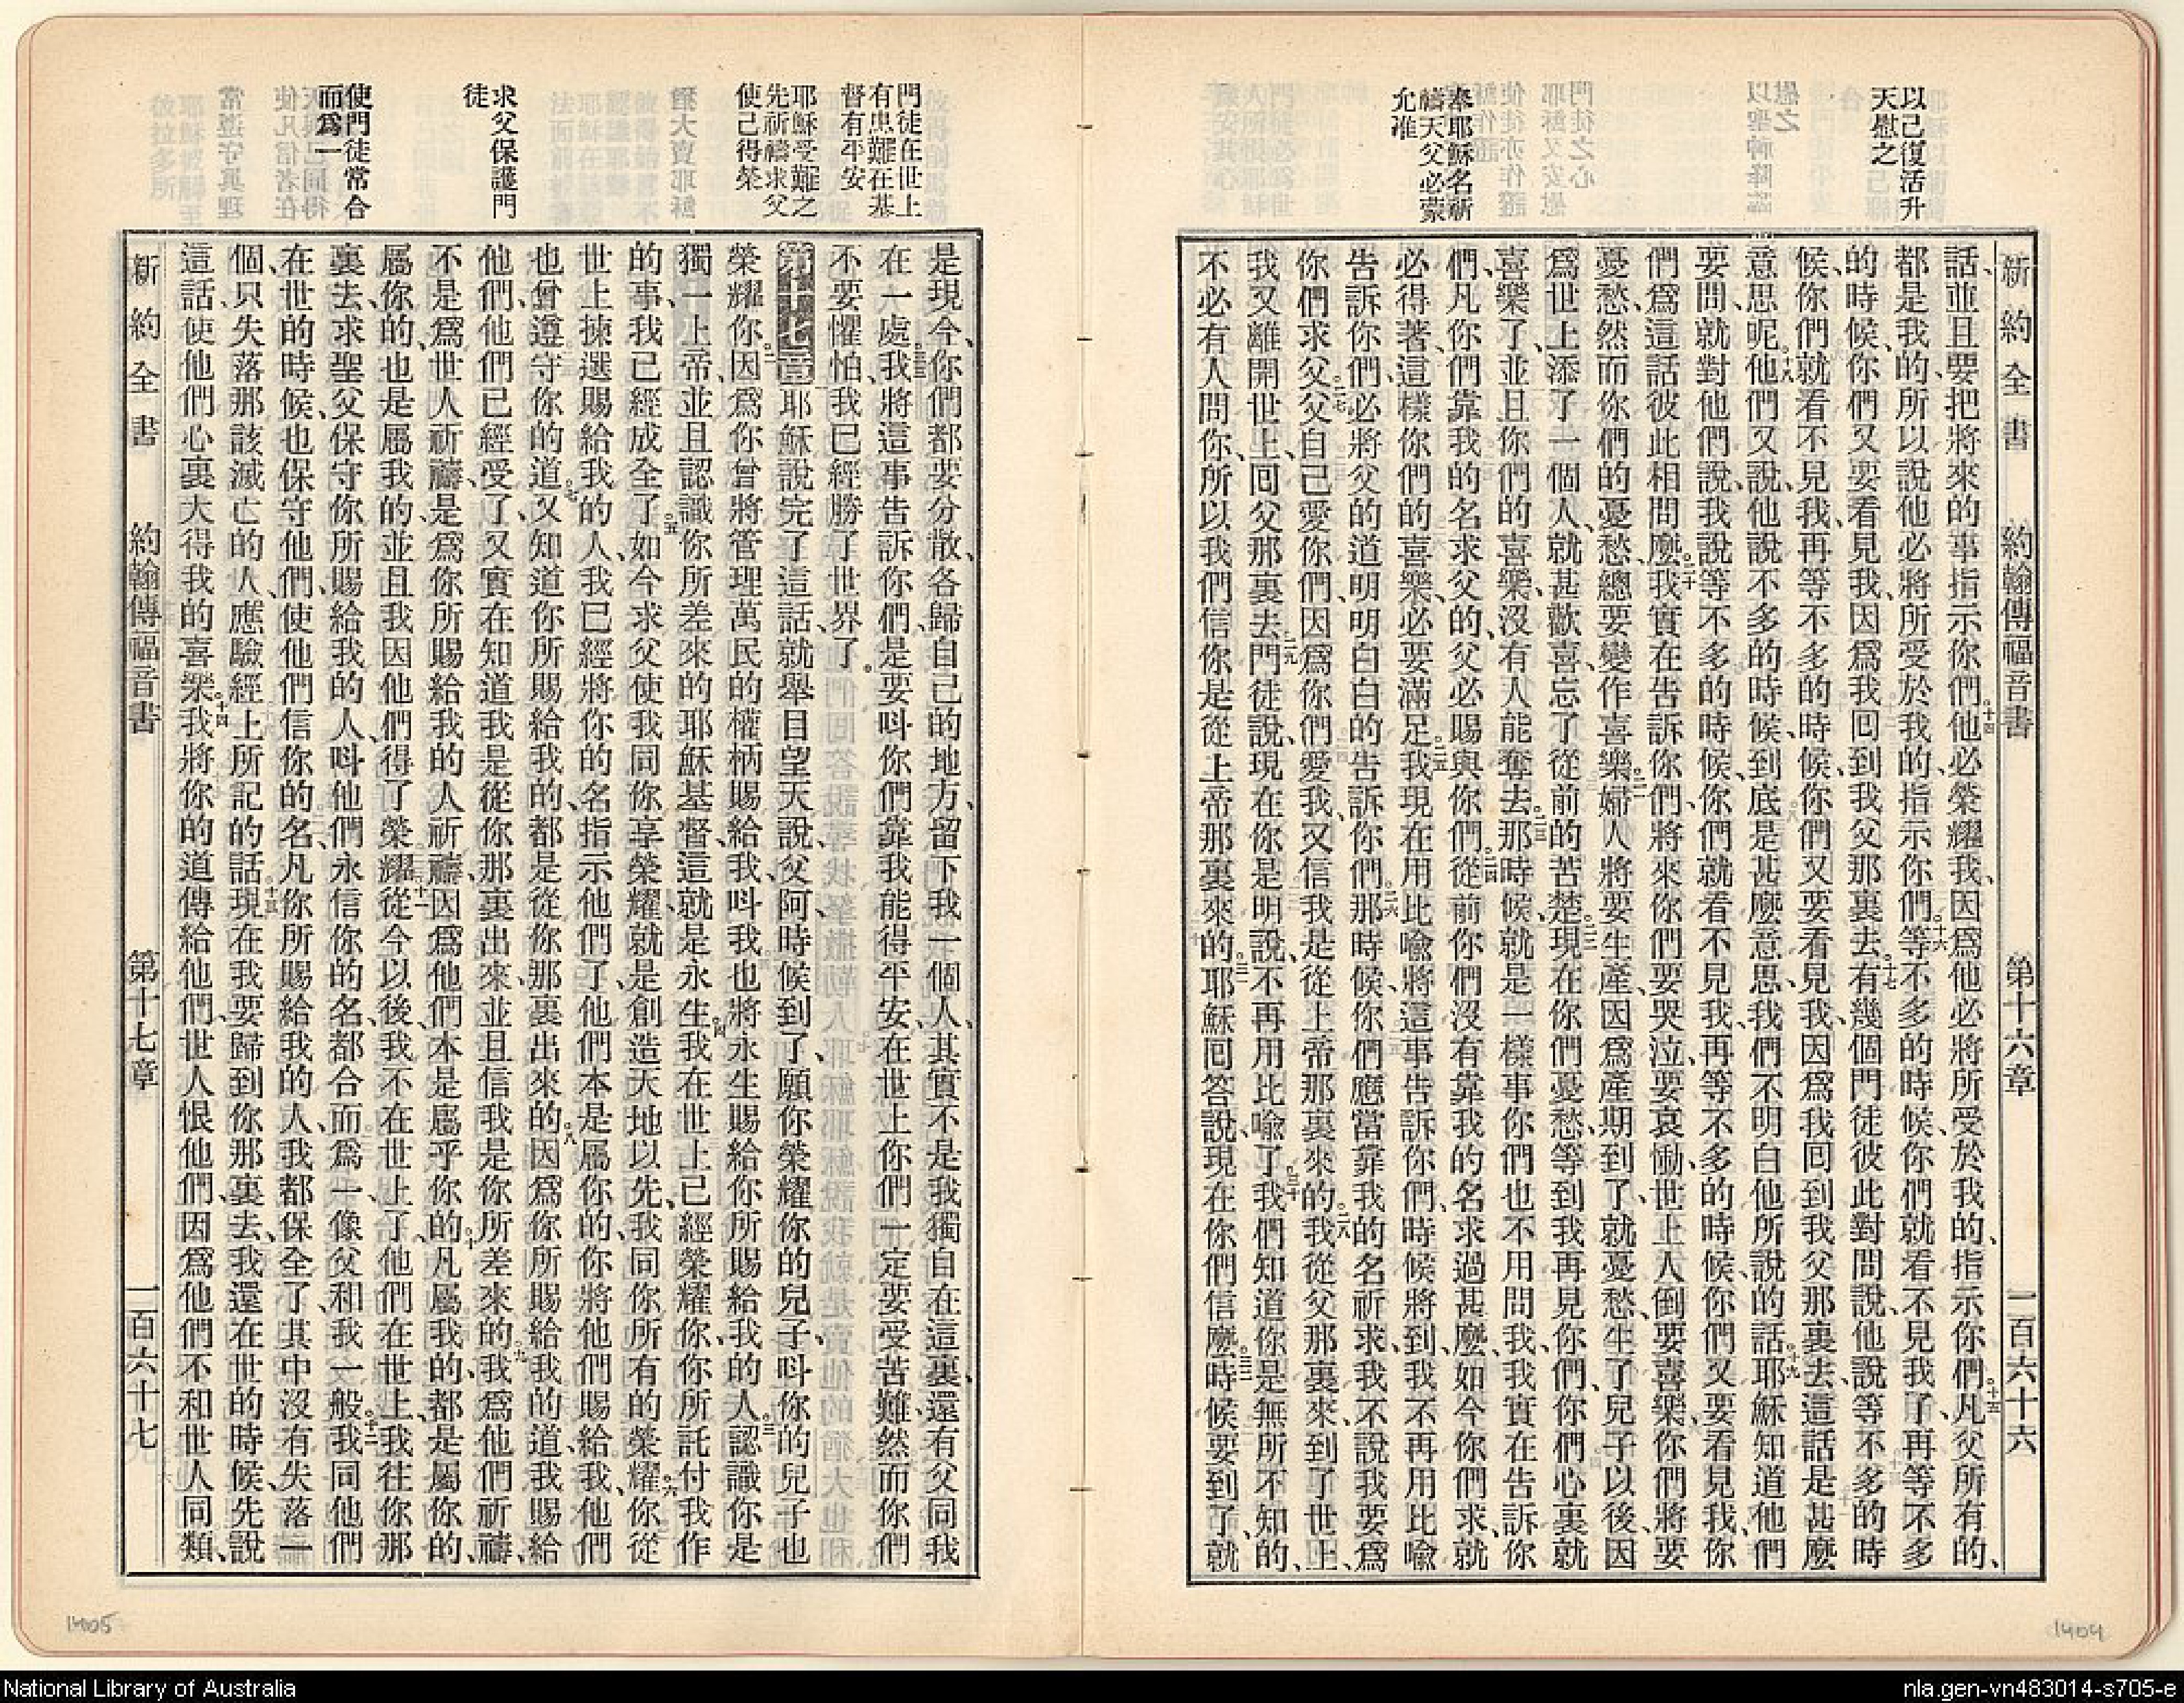 以己復活升
天慰之
奉耶穌名祈
禱天父必蒙
允准
新約全書 約翰傳福音書 第十六章 一百六十六
話、並且要把將來的事指示你們、他必榮耀我、因爲他必將所受於我的、指示你們、凡父所有的、
都是我的、所以說他必將所受於我的、指示你們、等不多的時候、你們就看不見我了、再等不多
的時候、你們又要看見我、因爲我回到我父那裏去、有幾個門徒彼此對問說、他說等不多的時
候、你們就看不見我、再等不多的時候、你們又要看見我、因爲我回到我父那裏去、這話是甚麽
意思呢、他們又說、他說不多的時候、到底是甚麽意思、我們不明白他所說的話、耶穌知道他們
要問、就對他們說、我說等不多的時候、你們就看不見我、再等不多的時候、你們又要看見我、你
們爲這話彼此相問麽、我實在告訴你們、將來你們要哭泣、要哀慟、世上人倒要喜樂、你們將要
憂愁、然而你們的憂愁、總要變作喜樂、婦人將要生產、因爲產期到了、就憂愁、生了兒子以後、因
爲世上添了一個人、就甚歡喜、忘了從前的苦楚、現在你們憂愁、等到我再見你們、你們心裏就
喜樂了、並且你們的喜樂、沒有人能奪去、那時候、就是一樣事、你們也不用問我、我實在告訴你
們、凡你們靠我的名求父的、父必賜與你們、從前你們沒有靠我的名求過甚麽、如今你們求、就
必得著、這樣你們的喜樂、必要滿足、我現在用比喻、將這事告訴你們、時候將到、我不再用比喻
告訴你們、必將父的道、明明白白的告訴你們、那時候、你們應當靠我的名祈求、我不說我要爲
你們求父、父自己愛你們、因爲你們愛我、又信我是從上帝那裏來的、我從父那裏來、到了世上、
我又離開世上、回父那裏去、門徒說、現在你是明說、不再用比喻了、我們知道你是無所不知的、
不必有人問你、所以我們信你是從上帝那裏來的、耶穌回答說、現在你們信麽、時候要到了、就
門徒在世上
有患難在基
督有平安
耶穌受難之
先祈禱求父
使己得榮
求父保護門
徒
使門徒常合
而爲一
是現今、你們都要分散、各歸自己的地方、留下我一個人、其實不是我獨自在這裏、還有父同我
在一處、我將這事告訴你們、是要呌你們靠我能得平安、在世上你們一定要受苦難、然而你們
不要懼怕、我已經勝了世界了。
第十七章 耶穌說完了這話、就舉目望天、說、父阿、時候到了、願你榮耀你的兒子、呌你的兒子也
榮耀你、因爲你曾將管理萬民的權柄賜給我、呌我也將永生賜給你所賜給我的人、認識你是
獨一上帝、並且認識你所差來的耶穌基督、這就是永生、我在世上已經榮耀你、你所託付我作
的事、我已經成全了、如今求父使我同你享榮耀、就是創造天地以先、我同你所有的榮耀、你從
世上揀選賜給我的人、我已經將你的名、指示他們了、他們本是屬你的、你將他們賜給我、他們
也曾遵守你的道、又知道你所賜給我的、都是從你那裏出來的、因爲你所賜給我的道、我賜給
他們、他們已經受了、又實在知道我是從你那裏出來、並且信我是你所差來的、我爲他們祈禱、
不是爲世人祈禱、是爲你所賜給我的人祈禱、因爲他們本是屬乎你的、凡屬我的、都是屬你的、
屬你的、也是屬我的、並且我因他們得了榮耀、從今以後、我不在世上了、他們在世上、我往你那
裏去、求聖父保守你所賜給我的人、呌他們永信你的名、都合而爲一、像父和我一般、我同他們
在世的時候、也保守他們、使他們信你的名、凡你所賜給我的人、我都保全了、其中沒有失落一
個、只失落那該滅亡的人、應驗經上所記的話、現在我要歸到你那裏去、我還在世的時候、先說
這話、使他們心裏大得我的喜樂、我將你的道傳給他們、世人恨他們、因爲他們不和世人同類、
新約全書 約翰傳福音書 第十七章 一百六十七
1405
1404
National Library of Australia
nla.gen-vn483014-s705-e